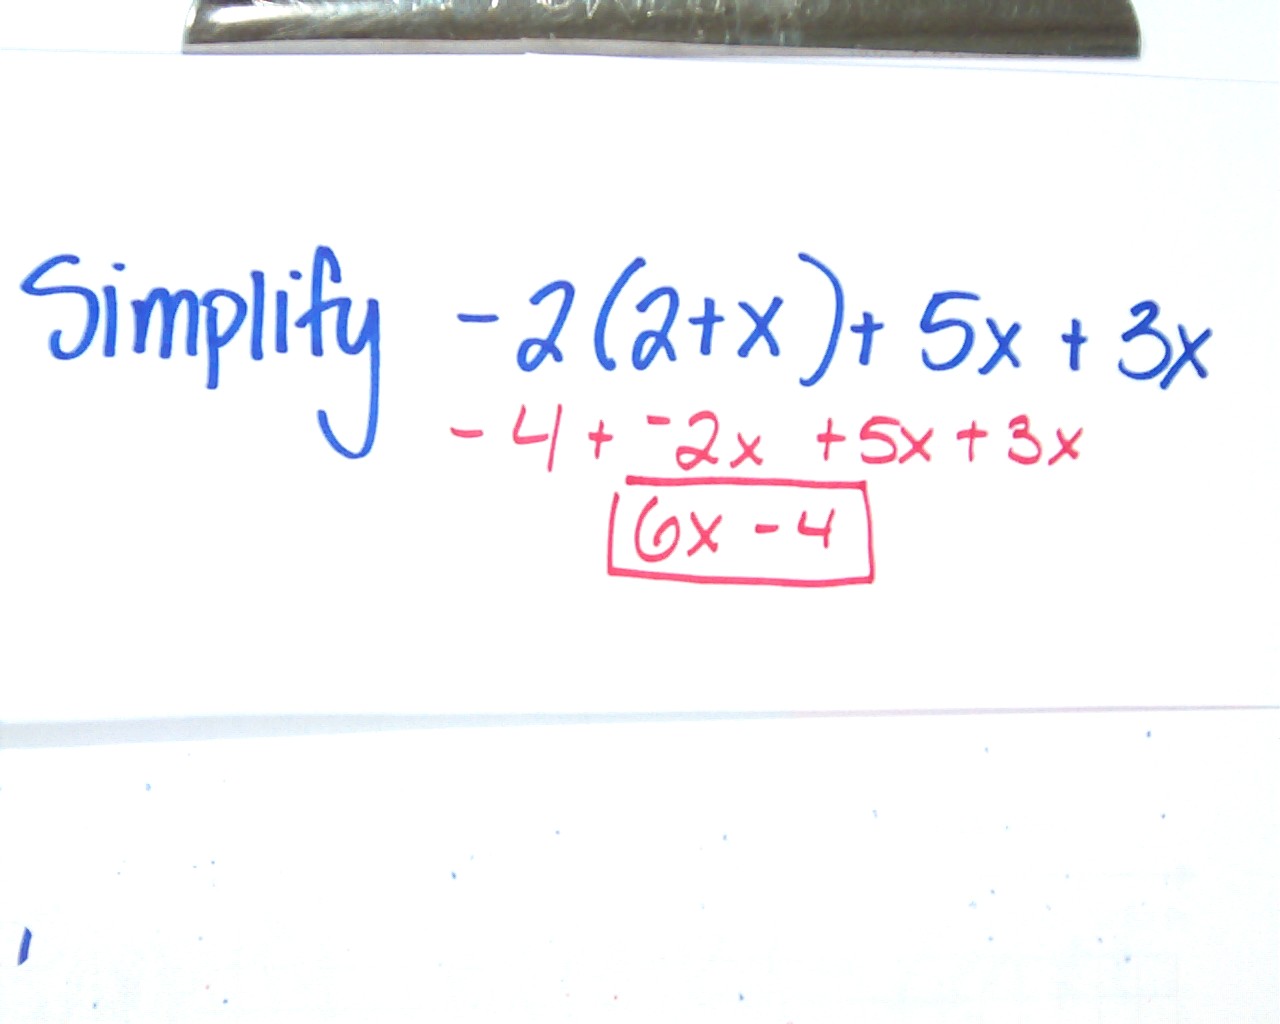 Simplify -2(2+x)+ 5x + 3x
-4 + -2x +5x + 3x
6x - 4